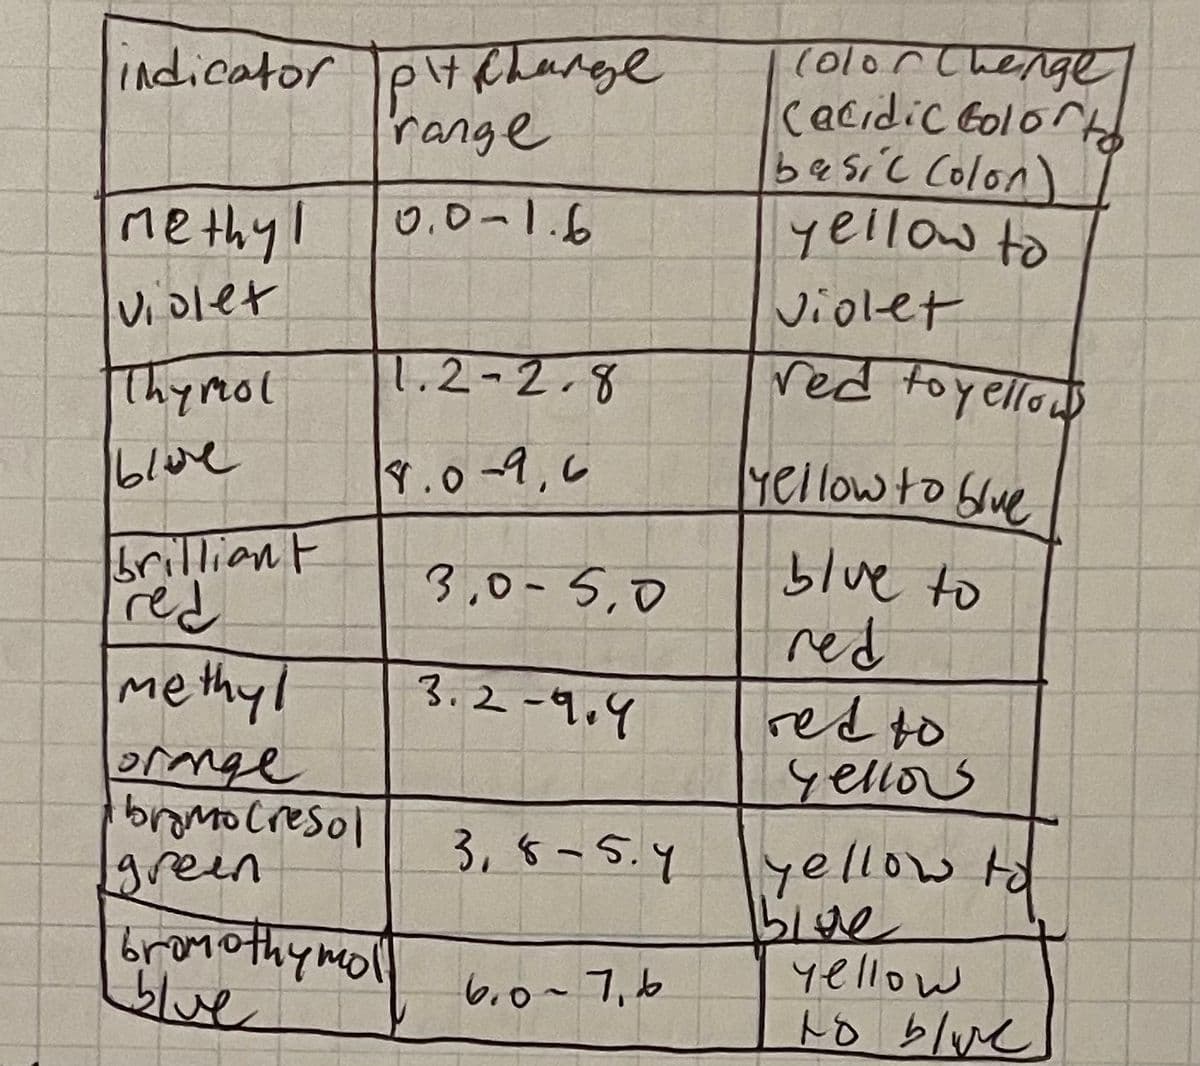 indicator
pH change
range
color change
(acidic color to
basic color)
methyl
violet
0.0-1.6
yellow to
violet
Thymol
blue
1.2-2.8
8.0-9.6
red to yellow
yellow to blue
brilliant
red
3.0-5.0
blue to
red
methyl
orange
3.2-4.4
red to
yellow
bromocresol
green
3.8-5.4
yellow to
blue
bromothymol
blue
6.0-7.6
yellow
to blue